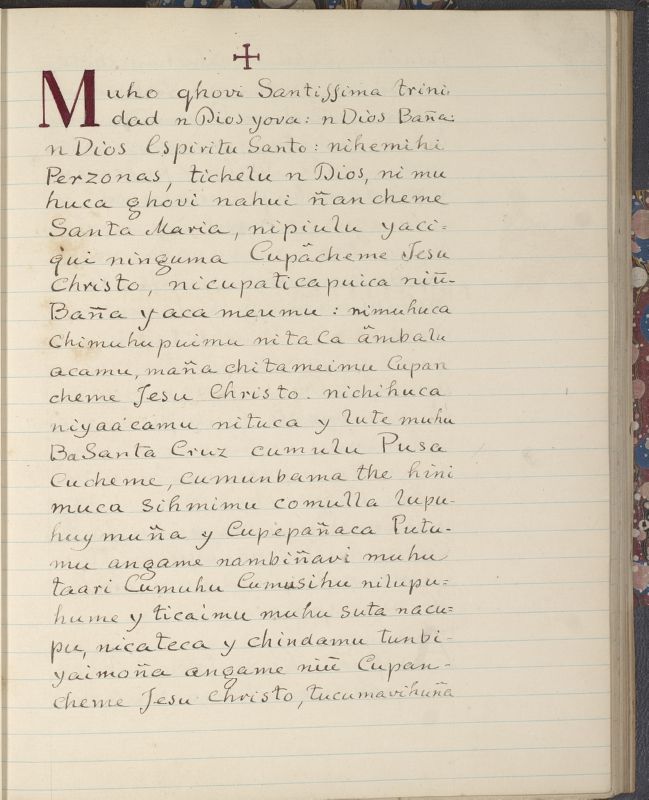 Muho ghovi Santissima trini
dad n Dios yova: n Dios Baña:
n Dios Espiritu Santo: nihemihi
Perzonas, tichelu n Dios, ni mu
huca ghovi nahui ñan cheme
Santa Maria, nipiulu yaci=
qui ninguma Cupãcheme Jesu
Christo, nicupaticapuica niñ-
Baña yaca meumu: nimuhuca
Chimuhupuimu nitaca ãmbalu
acamu, maña chitameimu Cupan
cheme Jesu Christo. nichihuca
niyaácamu nituca y lute muhu
Ba Santa Cruz cumulu Pusa
Cucheme, cumunbama the hini
muca sihmimu comulla lupu-
huy muña y Cupepañaca Putu-
mu angame nambiñavi muhu
taari Cumuhu Cumusihu nilupu=
hume y ticaimu muhu suta nacu=
pu, nicateca y chindamu tunbi-
yaimoña angame niñ Cupan-
cheme Jesu Christo, tucumavihuña